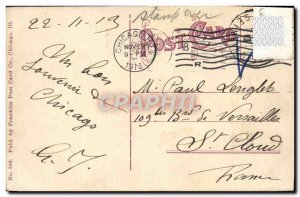 22-11-13
Stamp over
POST CARD
CHICAGO, ILL.
NOV 22
1913
Un bon
Souvenir de
Chicago
M. Paul Lenglet
Bd de Versailles
St Cloud
France
No. 108. Pubd. by Franklin Post Card Co., Chicago, Ill.